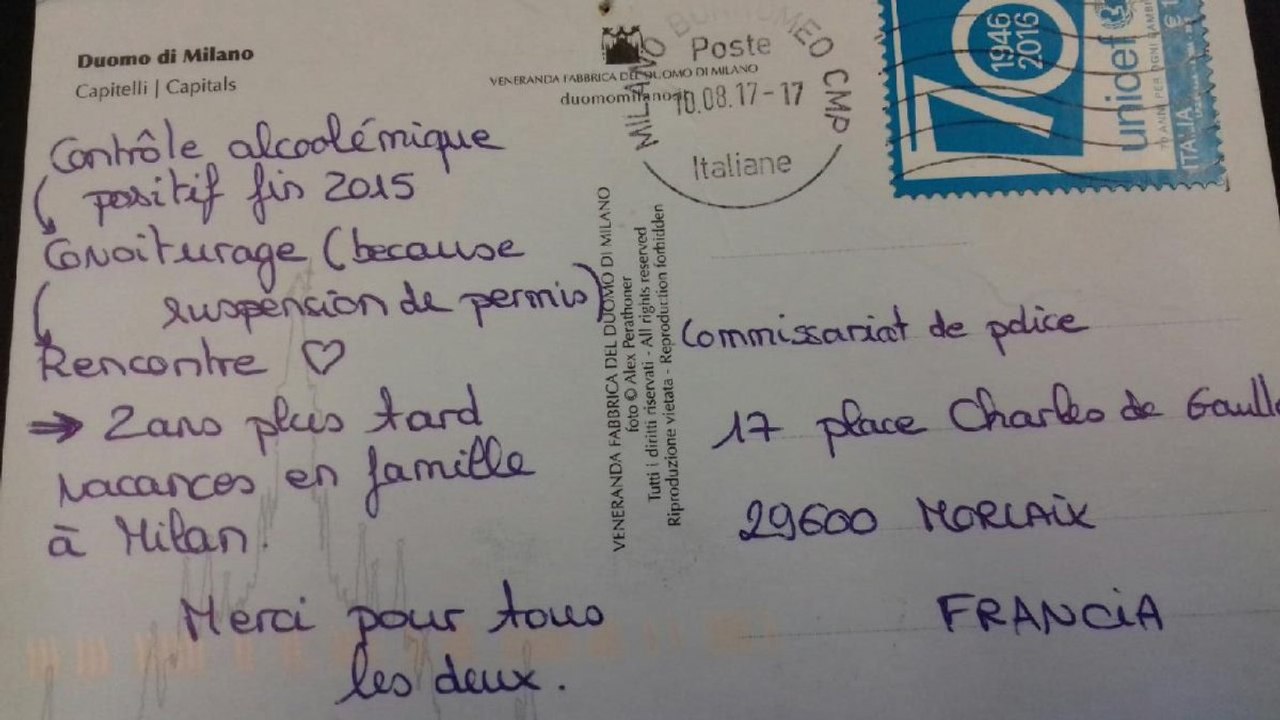 Duomo di Milano
Capitelli | Capitals
Contrôle alcoolémique
positif fin 2015
Covoiturage (because
suspension de permis)
Rencontre ♡
⇒ 2 ans plus tard
vacances en famille
à Milan!
Merci pour tous
les deux.
VENERANDA FABBRICA DEL DUOMO DI MILANO
duomomilano.it
VENERANDA FABBRICA DEL DUOMO DI MILANO
foto © Alex Perathoner
Tutti i diritti riservati - All rights reserved
Riproduzione vietata - Reproduction forbidden
MILANO BORROMEO CMP
Poste
10.08.17-17
Italiane
70
1946
2016
unicef
70 ANNI PER OGNI BAMBI
ITALIA €1
Commissariat de police
17 place Charles de Gaulle
29600 MORLAIX
FRANCiA